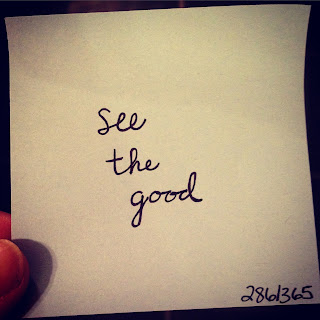 see
the
good
286/365